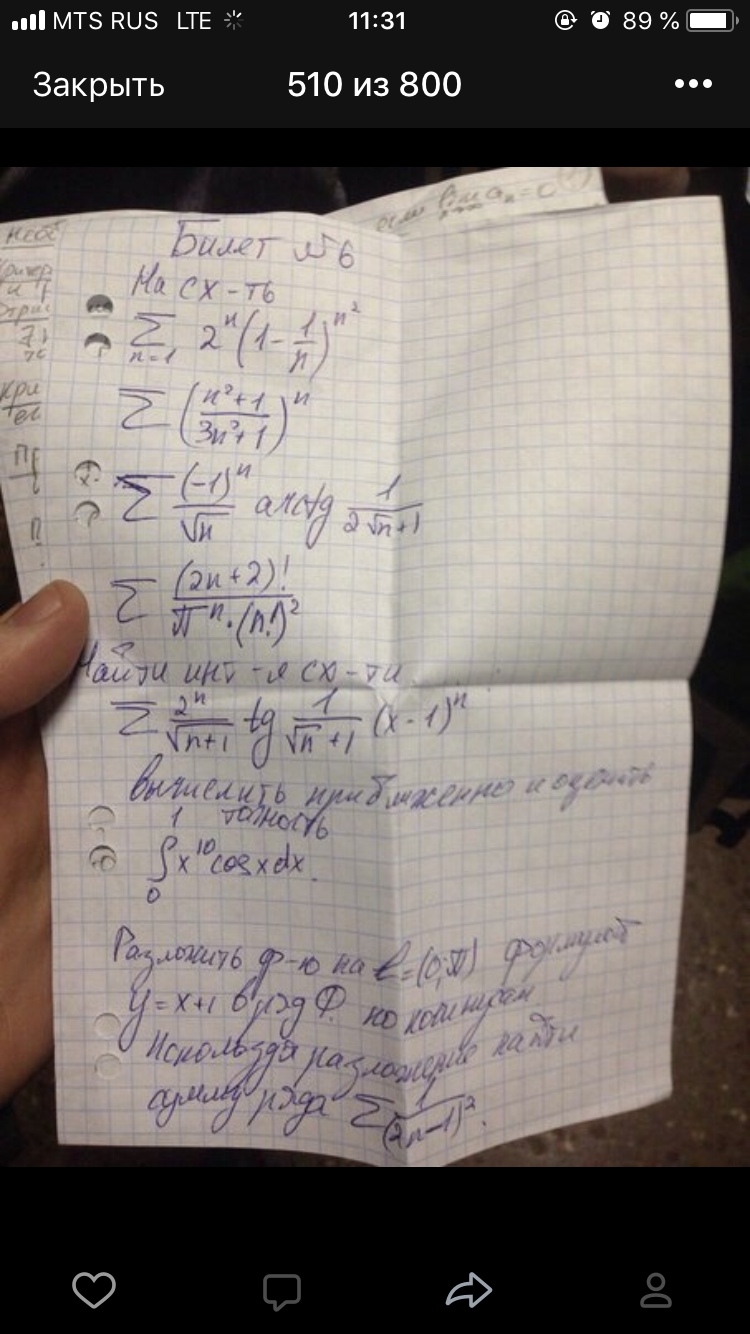 MTS RUS LTE 11:31 89 %
Закрыть 510 из 800
если lim aₙ = 0
Билет №6
На сх-ть
∑ n=1 2ⁿ(1 - 1/n)^n²
∑ ((n²+1)/(3n²+1))ⁿ
∑ (-1)ⁿ/√n arctg 1/(2√n+1)
∑ (2n+2)!/(πⁿ·(n!)²)
Найти инт-л сх-ти
∑ 2ⁿ/√(n+1) tg 1/(√n+1) (x-1)ⁿ
Вычислить приближенно и оценить
точность
∫₀¹ x¹⁰ cosx dx.
Разложить ф-ю на l=(0;π)
y=x+1 в ряд Ф. по косинусам
Используя разложение найти
сумму ряда ∑ 1/(2n-1)².